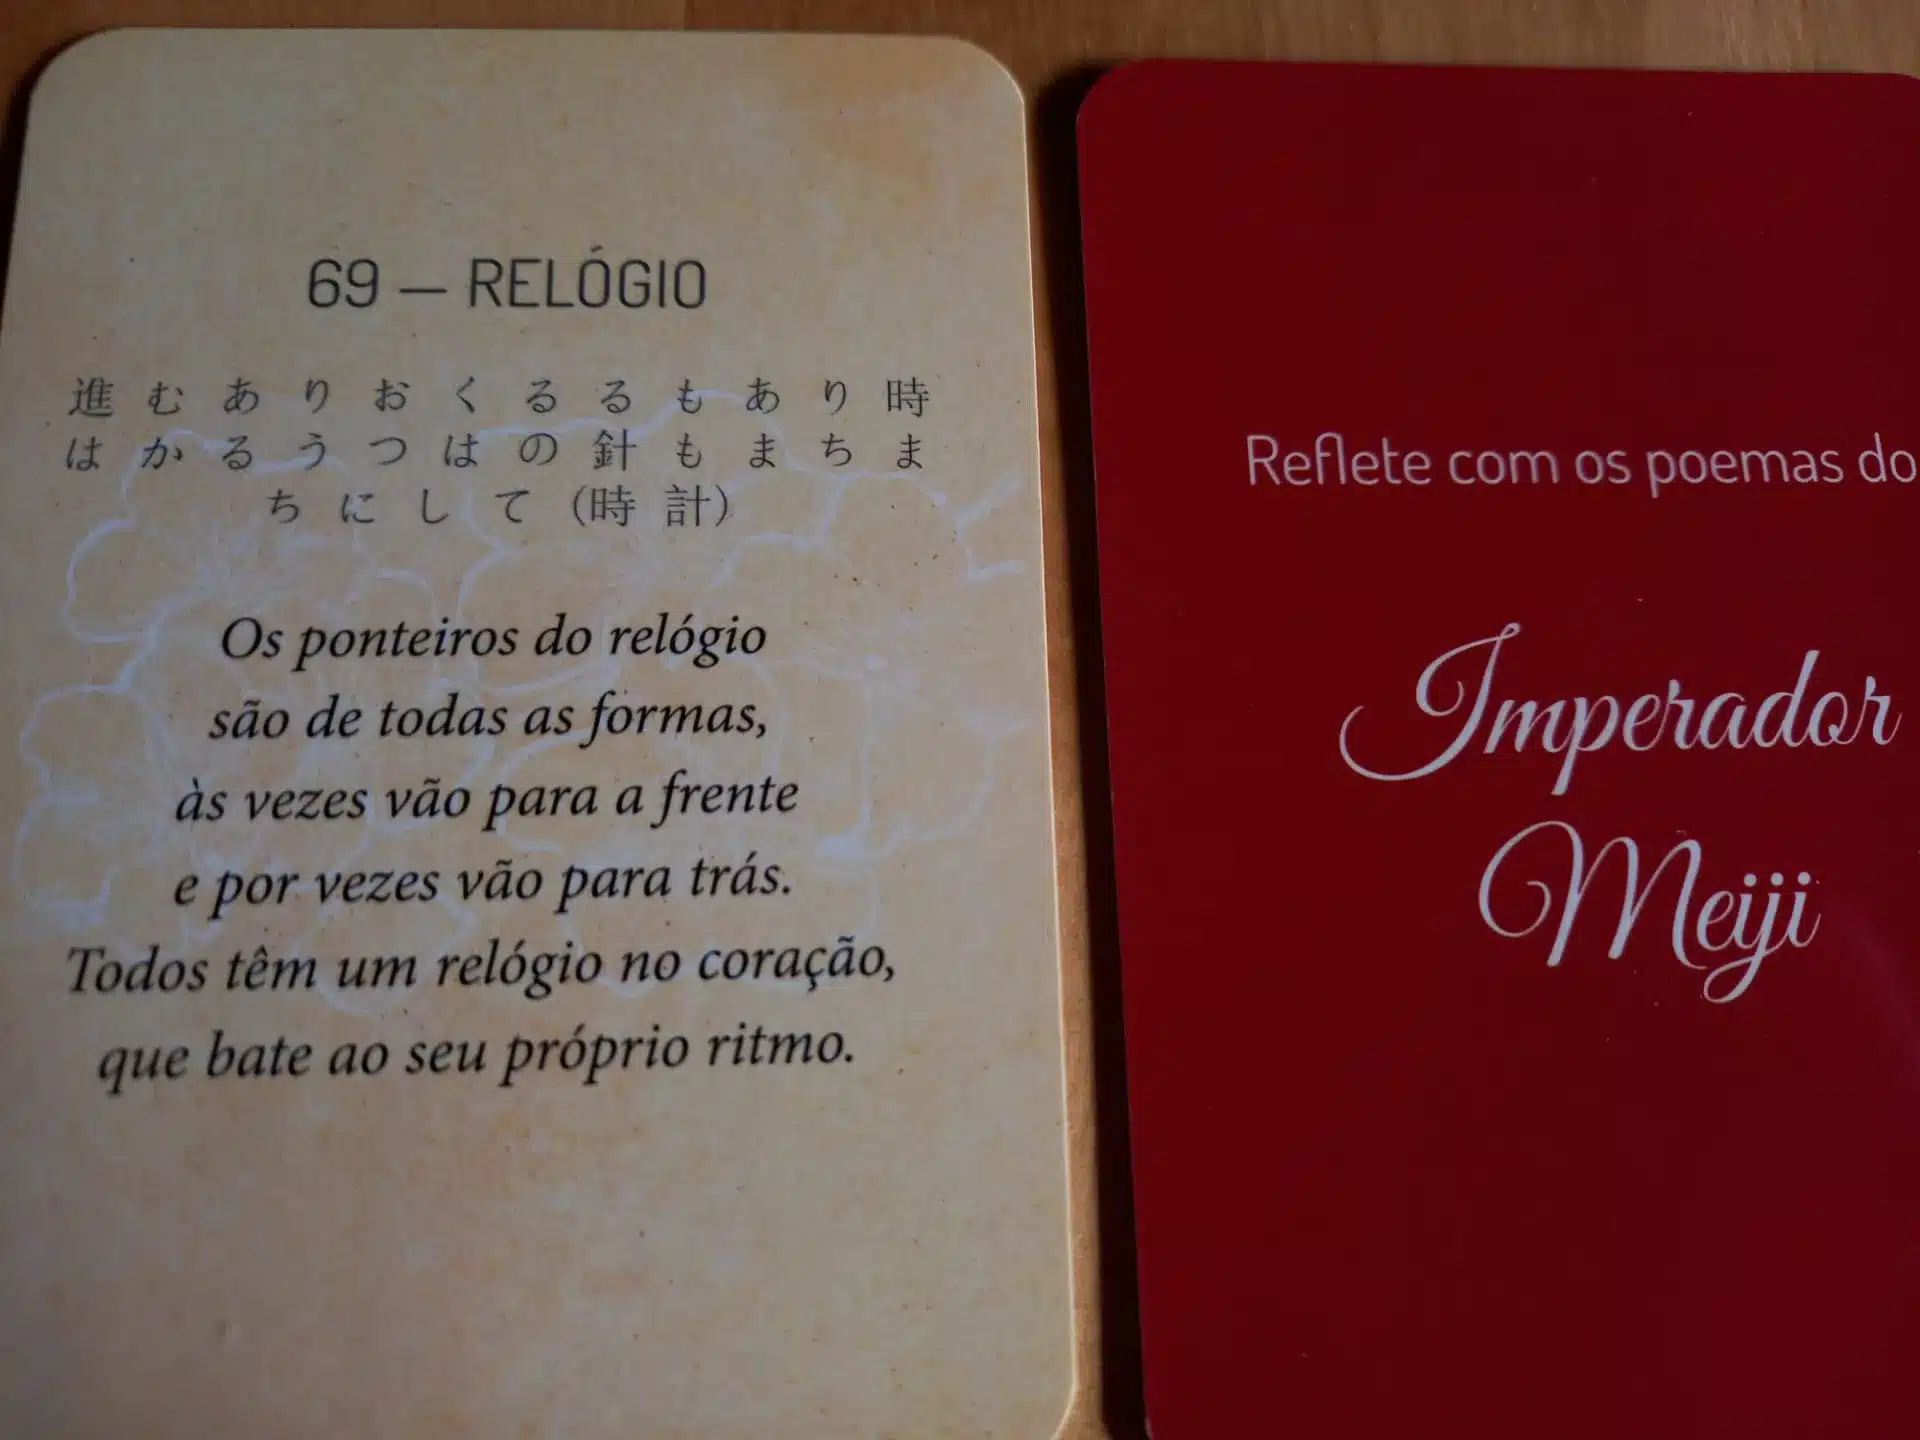 69 — RELÓGIO
進むありおくるるもあり時
はかるうつはの針もまちま
ちにして(時計)
Os ponteiros do relógio
são de todas as formas,
às vezes vão para a frente
e por vezes vão para trás.
Todos têm um relógio no coração,
que bate ao seu próprio ritmo.
Reflete com os poemas do
Imperador
Meiji